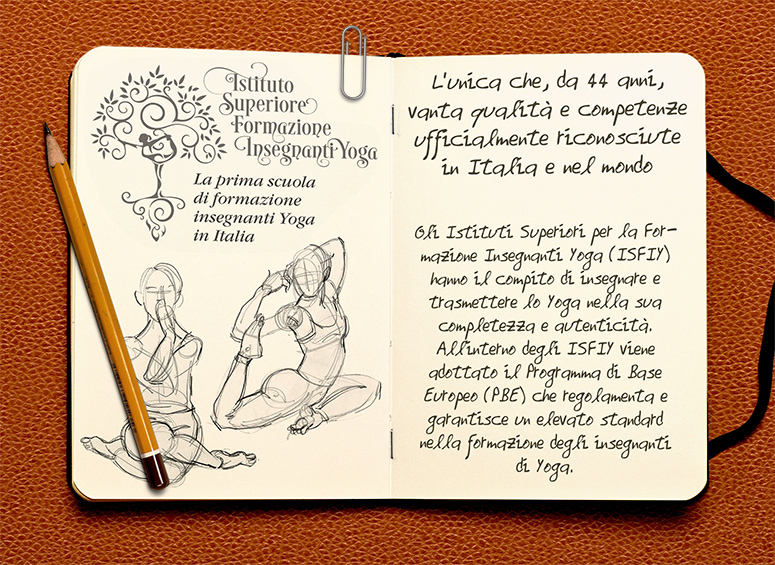 Istituto
Superiore
Formazione
Insegnanti Yoga
La prima scuola
di formazione
insegnanti Yoga
in Italia
L'unica che, da 44 anni,
vanta qualità e competenze
ufficialmente riconosciute
in Italia e nel mondo
Gli Istituti Superiori per la For-
mazione Insegnanti Yoga (ISFIY)
hanno il compito di insegnare e
trasmettere lo Yoga nella sua
completezza e autenticità.
All'interno degli ISFIY viene
adottato il Programma di Base
Europeo (PBE) che regolamenta e
garantisce un elevato standard
nella formazione degli insegnanti
di Yoga.